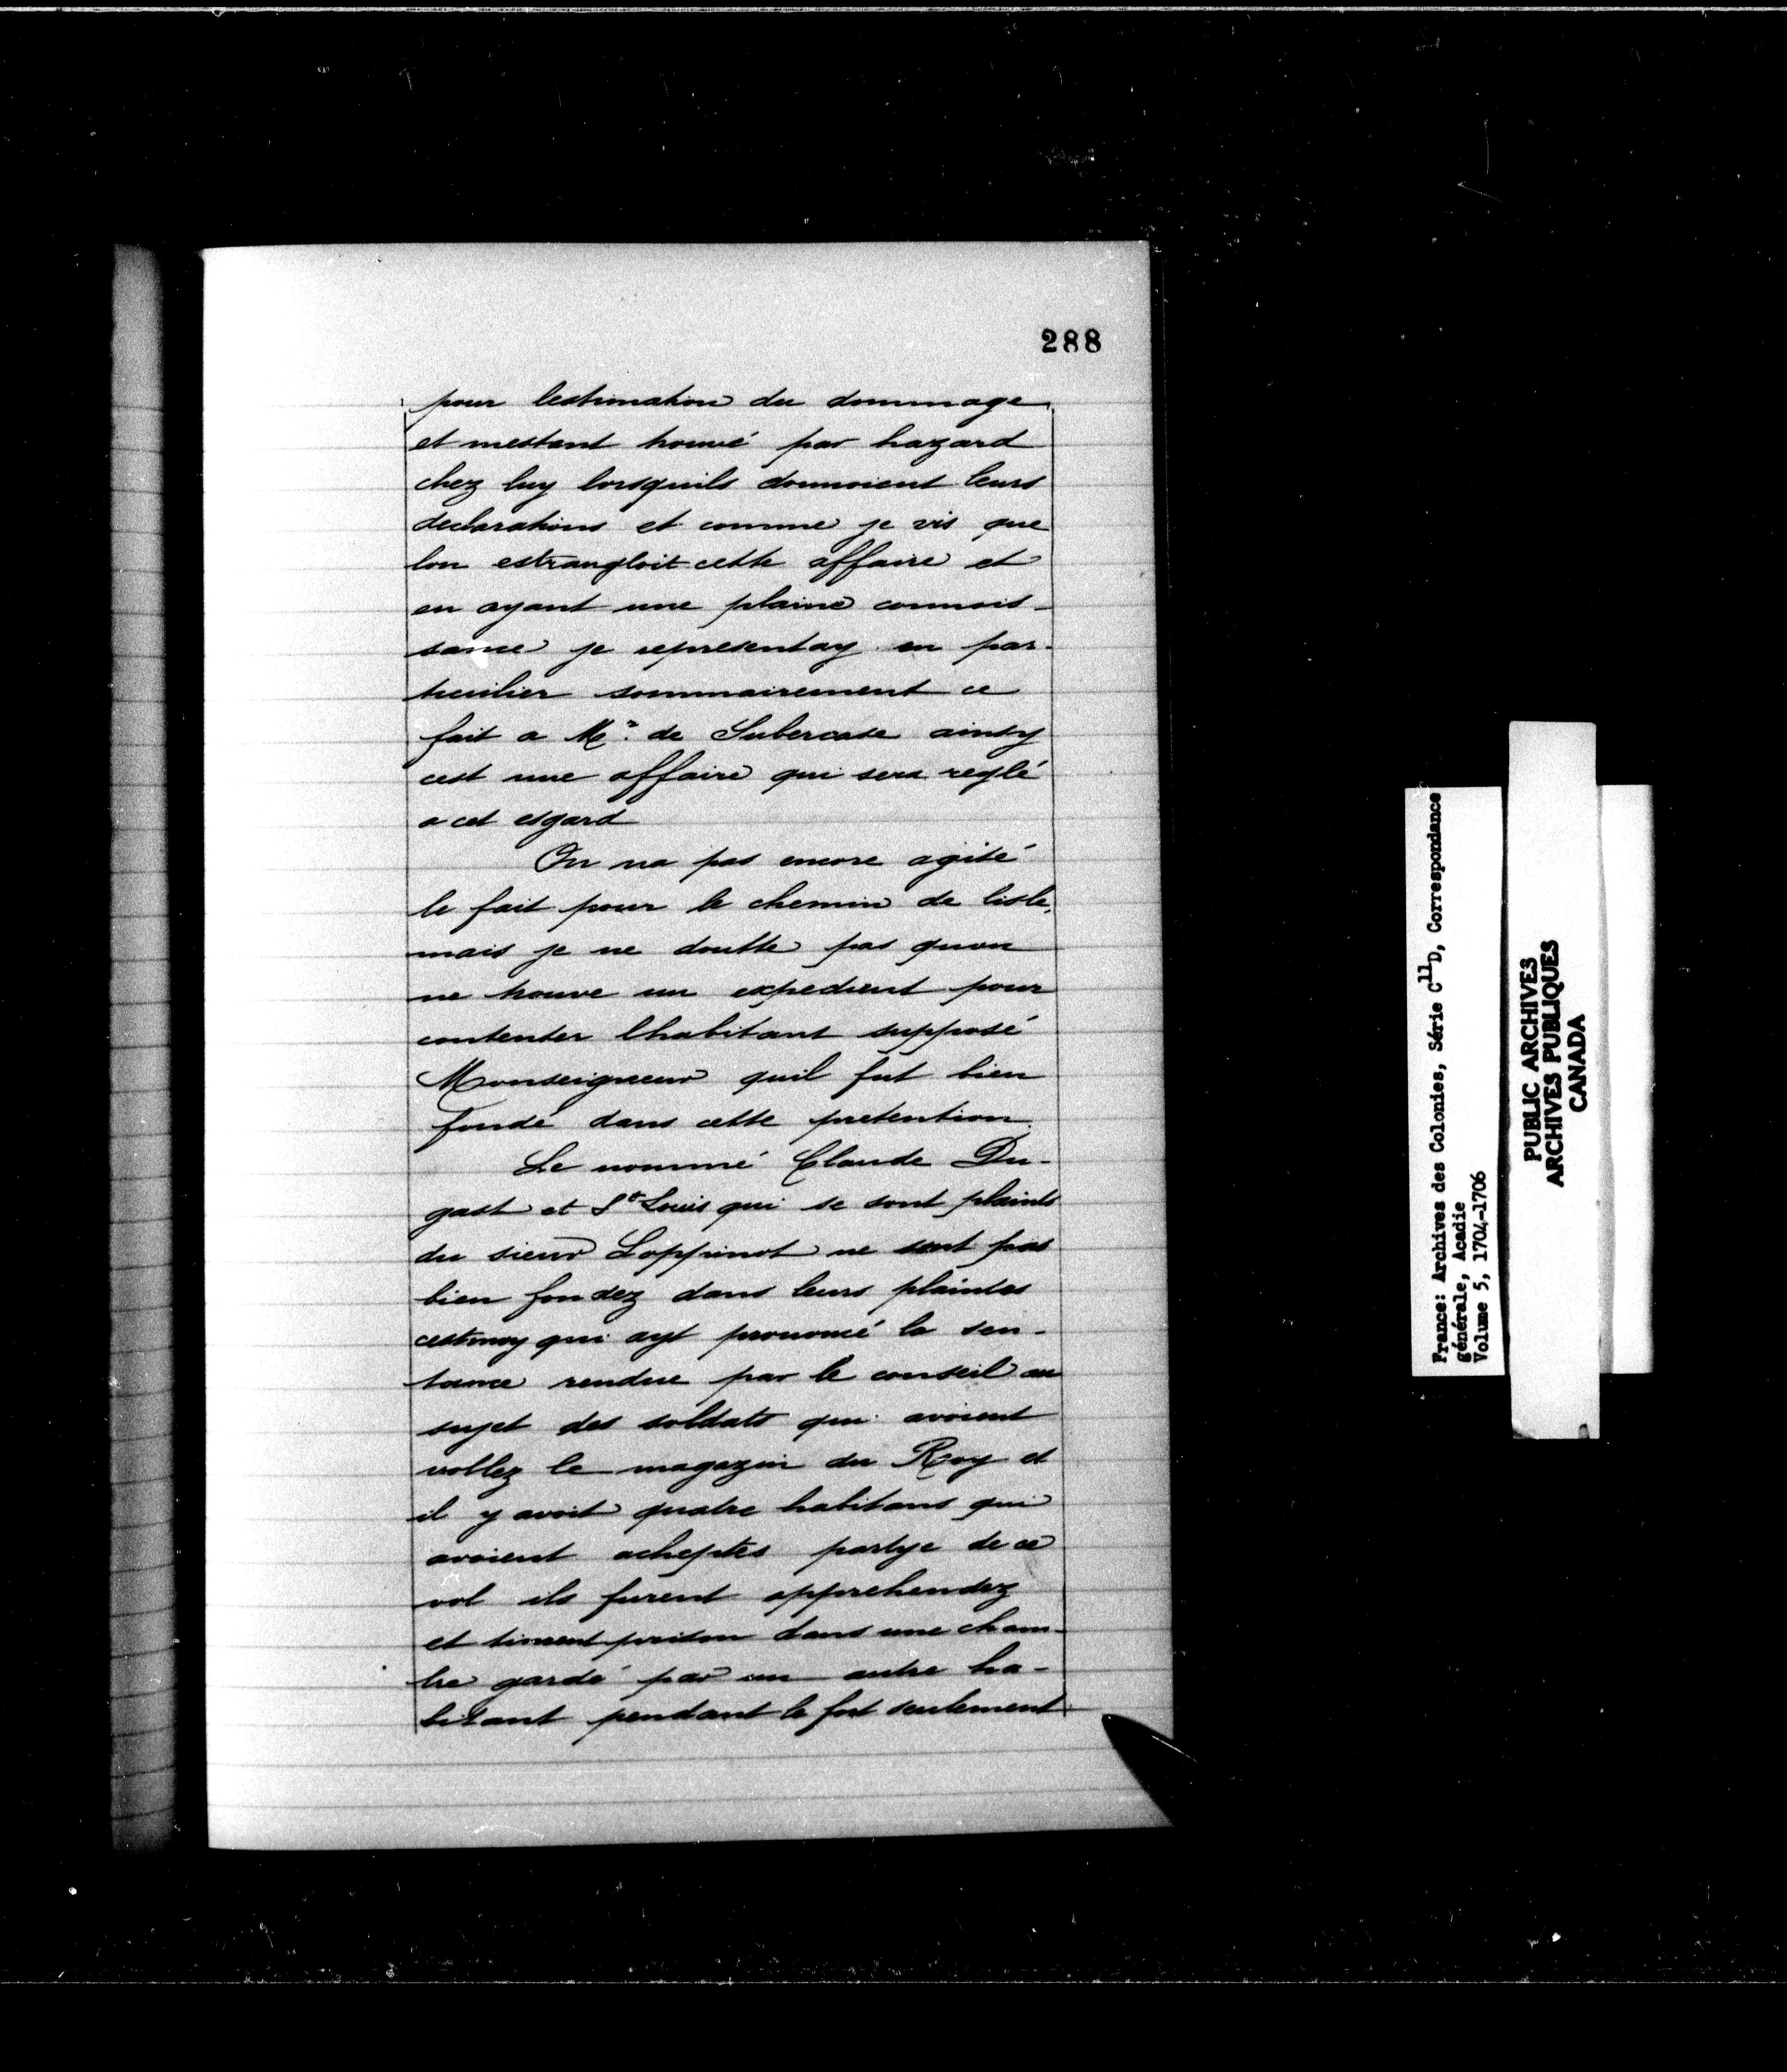 288
pour lestimation du dommage
et mestant trouvé par hazard
chez luy lorsquils donnoient leurs
declarations et comme je vis que
lon estrangloit cette affaire et
en ayant une plaine connois-
sance je representay en par-
ticulier sommairement ce
fait a Mr. de Subercase ainsy
cest une affaire qui sera reglé
a cet esgard
On na pas encore agité
le fait pour le chemin de lisle,
mais je ne doutte pas quon
ne trouve un expedient pour
contenter lhabitant supposé
Monseigneur quil fut bien
fondé dans cette pretention.
Le nommé Claude Du-
gast et St Louis qui se sont plaints
du sieur Loppinot ne sont pas
bien fondez dans leurs plaintes
cestmoy qui ayt prononcé la sen-
tance rendue par le conseil au
sujet des soldats qui avoient
vollez le magazin du Roy et
il y avoit quatre habitans qui
avoient acheptés partye de ce
vol ils furent apprehendez
et tinrent prison dans une cham-
bre gardé par un autre ha-
bitant pendant le fort seulement
France: Archives des Colonies, Série C11D, Correspondance
générale, Acadie
Volume 5, 1704-1706
PUBLIC ARCHIVES
ARCHIVES PUBLIQUES
CANADA